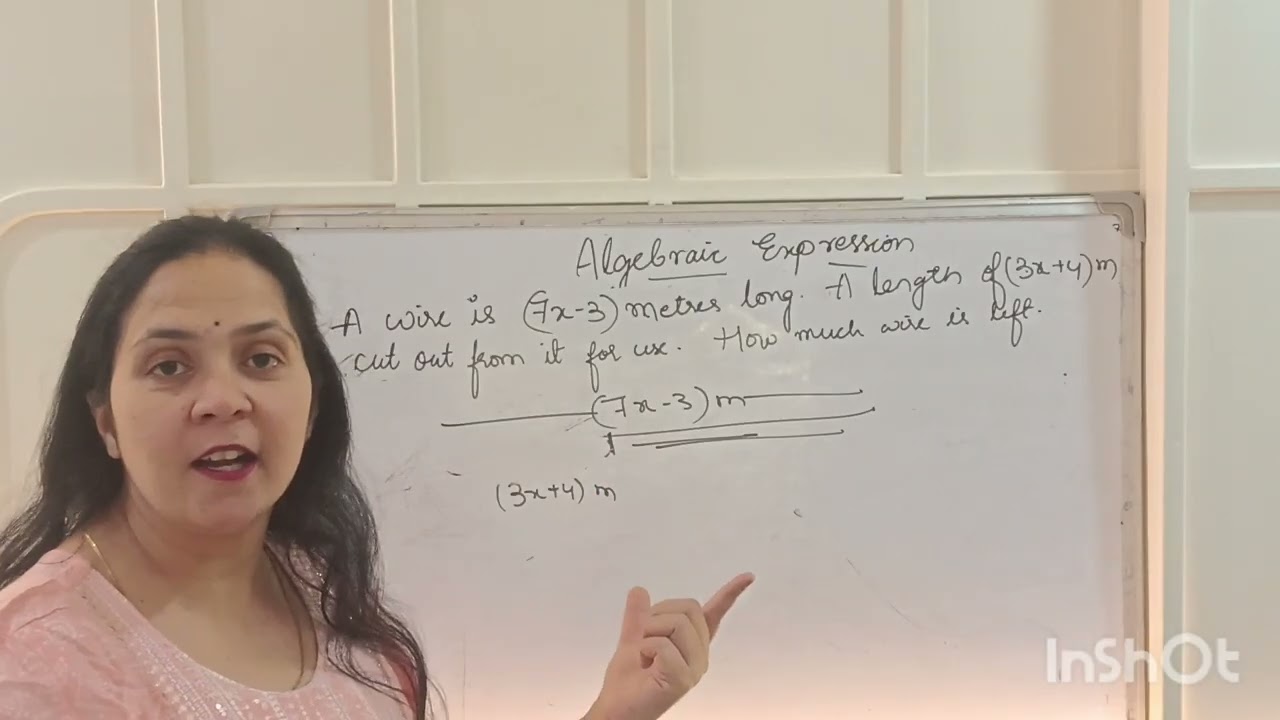 Algebraic Expression
A wire is (7x-3) metres long. A length of (3x+4) m
cut out from it for use. How much wire is left.
(7x-3) m
(3x+4) m
InShOt